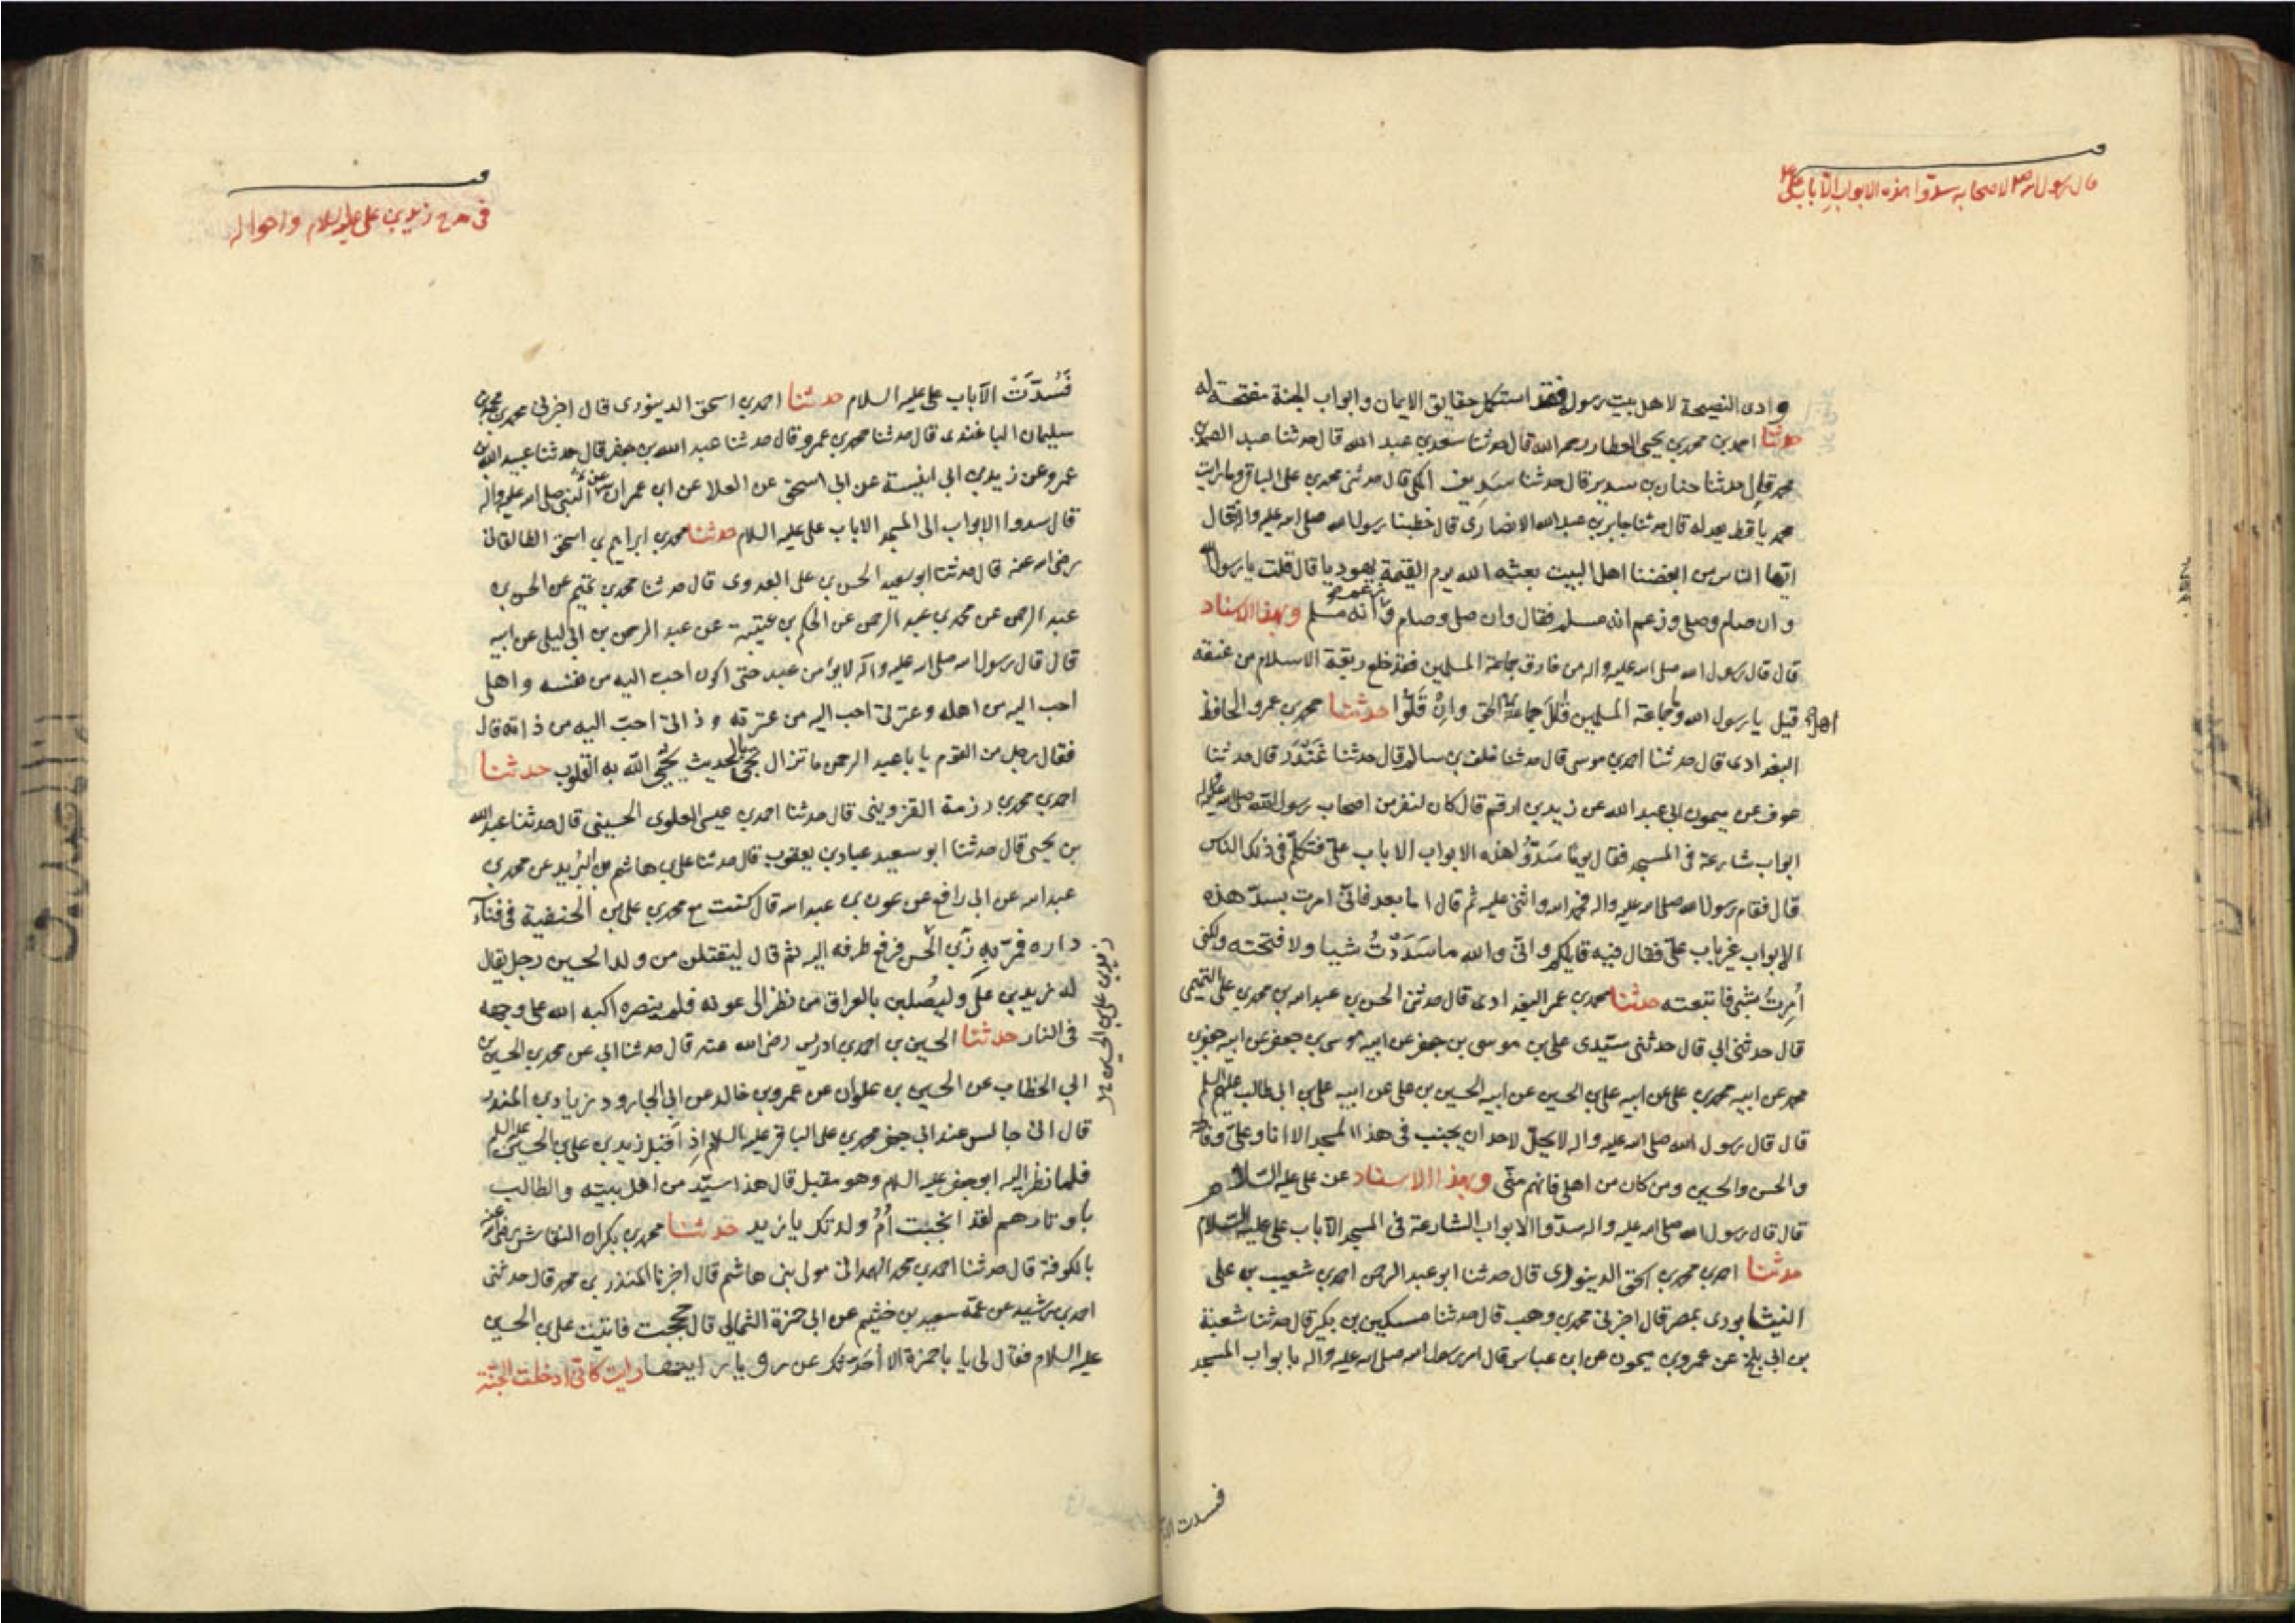 قال رسول الله ص لاصحابه سدّوا هذه الابواب الّا باب علی ع
وادی النصیحة لاهل بیت رسوله فقد استکمل حقایق الایمان وابواب الجنة مفتحة له
حدثنا احمد بن محمد بن یحیی العطار رحمه الله قال حدثنا سعد بن عبد الله قال حدثنا عبد الصمد بن
محمد قال حدثنا حنان بن سدیر قال حدثنا سَدِیف المکی قال حدثنی محمد بن علی الباقر وما رایت
محمدیا قط یعدله قال حدثنا جابر بن عبد الله الانصاری قال خطبنا رسول الله صلی الله علیه واله فقال
ایّها الناس من ابغضنا اهل البیت بعثه الله یوم القیمة یهودیا قال قلت یا رسول الله
وان صام وصلی وزعم انه مسلم فقال وان صلی وصام وزعم انه مسلم وبهذا الاسناد
قال قال رسول الله صلی الله علیه واله من فارق جماعة المسلمین فقد خلع ربقة الاسلام من عنقه
قیل یا رسول الله وما جماعة المسلمین قال جماعة اهل الحق وانْ قَلّوا حدثنا محمد بن عمرو الحافظ
البغدادی قال حدثنا احمد بن موسی قال حدثنا خلف بن سالم قال حدثنا غُنْدَر قال حدثنا
عوف عن میمون ابی عبد الله عن زید بن ارقم قال کان لنفر من اصحاب رسول الله صلی الله علیه واله
ابواب شارعة فی المسجد فقال یومًا سَدّوا هذه الابواب الا باب علیّ فتکلّم فی ذلک الناس
قال فقام رسول الله صلی الله علیه واله فحمد الله واثنی علیه ثم قال اما بعد فانّی امرت بسدّ هذه
الابواب غیر باب علیّ فقال فیه قایلکم وانّی والله ما سَدَدْتُ شیئا ولا فتحته ولکنی
اُمِرتُ بشیء فاتبعته حدثنا محمد بن عمر البغدادی قال حدثنی الحسن بن عبد الله بن محمد بن علی التمیمی
قال حدثنی ابی قال حدثنی سیّدی علی بن موسی بن جعفر عن ابیه موسی بن جعفر عن ابیه جعفر بن
محمد عن ابیه محمد بن علی عن ابیه علی بن الحسین عن ابیه الحسین بن علی عن ابیه علی بن ابی طالب علیهم السلم
قال قال رسول الله صلی الله علیه واله لا یحلّ لاحد ان یجنب فی هذا المسجد الا انا وعلیّ وفاطمة
والحسن والحسین ومن کان من اهلی فانهم منّی وبهذا الاسناد عن علی علیه السّلام
قال قال رسول الله صلی الله علیه واله سدّوا الابواب الشارعة فی المسجد الّا باب علی علیه السّلام
حدثنا احمد بن محمد بن اسحق الدینوری قال حدثنا ابو عبد الرحمن احمد بن شعیب بن علی
النیشابوری بمصر قال اخبرنی محمد بن وهب قال حدثنا مسکین بن بکیر قال حدثنا شعبة
بن ابی بلج عن عمرو بن میمون عن ابن عباس قال امر رسول الله صلی الله علیه واله بابواب المسجد
فسدت الا
فی مدح زید بن علی علیه السلام واحواله
فَسُدّتْ الّا باب علی علیه السلام حدثنا احمد بن اسحق الدینوری قال اخبرنی محمد بن محمد بن
سلیمان الباغندی قال حدثنا محمد بن عمرو قال حدثنا عبد الله بن جعفر قال حدثنا عبید الله بن
عمرو عن زید بن ابی انیسة عن ابی اسحق عن العلا عن ابن عمر ان النبی صلی الله علیه واله
قال سدوا الابواب الی المسجد الا باب علی علیه السلام حدثنا محمد بن ابراهیم بن اسحق الطالقانی
رضی الله عنه قال حدثنا ابو سعید الحسن بن علی العدوی قال حدثنا محمد بن تمیم عن الحسن بن
عبد الرحمن عن محمد بن عبد الرحمن عن الحکم بن عتیبة عن عبد الرحمن بن ابی لیلی عن ابیه
قال قال رسول الله صلی الله علیه واله لا یؤمن عبد حتی اکون احب الیه من نفسه واهلی
احب الیه من اهله وعترتی احب الیه من عترته وذاتی احبّ الیه من ذاته قال
فقال رجل من القوم یا با عبد الرحمن ما تزال تجیء بالحدیث یُحیی الله به القلوب حدثنا
احمد بن محمد بن رزمة القزوینی قال حدثنا احمد بن عیسی العلوی الحسینی قال حدثنا عبد الله
بن یحیی قال حدثنا ابو سعید عباد بن یعقوب قال حدثنا علی بن هاشم بن البُرید عن محمد بن
عبد الله عن ابی رافع عن عون بن عبد الله قال کنت مع محمد بن علی بن الحنفیة فی فناء
داره فمرّ به زید بن الحسن فرفع طرفه الیه ثم قال لیقتلن من ولد الحسین رجل یقال
زید بن علی بن الحسین
له زید بن علی ولیُصلبن بالعراق من نظر الی عورته فلم ینصره اکبه الله علی وجهه
فی النار حدثنا الحسین بن احمد بن ادریس رضی الله عنه قال حدثنا ابی عن محمد بن الحسین بن
ابی الخطاب عن الحسین بن علوان عن عمرو بن خالد عن ابی الجارود زیاد بن المنذر
قال انی جالس عند ابی جعفر محمد بن علی الباقر علیه السلام اِذ اَقبل زید بن علی بن الحسین علیه السلم
فلما نظر الیه ابو جعفر علیه السلام وهو مقبل قال هذا سیّد من اهل بیته والطالب
باوتارهم لقد انجبت اُمّ ولدتک یا زید حدثنا محمد بن بکران النقاش رضی الله عنه
بالکوفة قال حدثنا احمد بن محمد الهمدانی مولی بنی هاشم قال اخبرنا المنذر بن محمد قال حدثنی
احمد بن رشید عن عمّه سعید بن خثیم عن ابی حمزة الثمالی قال حججت فاتیت علی بن الحسین
علیه السلام فقال لی یا با حمزة الا اُحَدّثک عن رؤیا رایتها رایت کانّی ادخلت الجنّة